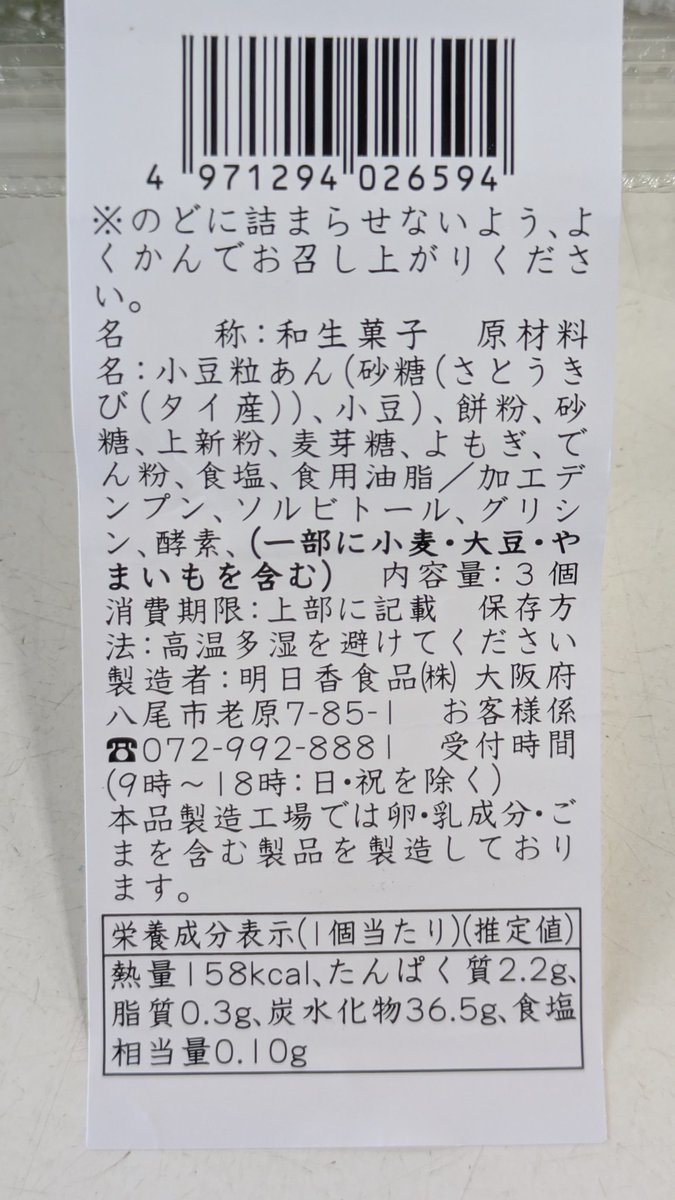 4 971294 026594
※のどに詰まらせないよう、よ
くかんでお召し上がりくださ
い。
名　　称：和生菓子　原材料
名：小豆粒あん(砂糖(さとうき
び(タイ産))、小豆)、餅粉、砂
糖、上新粉、麦芽糖、よもぎ、で
ん粉、食塩、食用油脂／加工デ
ンプン、ソルビトール、グリシ
ン、酵素、(一部に小麦・大豆・や
まいもを含む)　内容量：3個
消費期限：上部に記載　保存方
法：高温多湿を避けてください
製造者：明日香食品㈱ 大阪府
八尾市老原7-85-1　お客様係
☎072-992-8881　受付時間
(9時～18時：日・祝を除く)
本品製造工場では卵・乳成分・ご
まを含む製品を製造しており
ます。
栄養成分表示(1個当たり)(推定値)
熱量158kcal、たんぱく質2.2g、
脂質0.3g、炭水化物36.5g、食塩
相当量0.10g